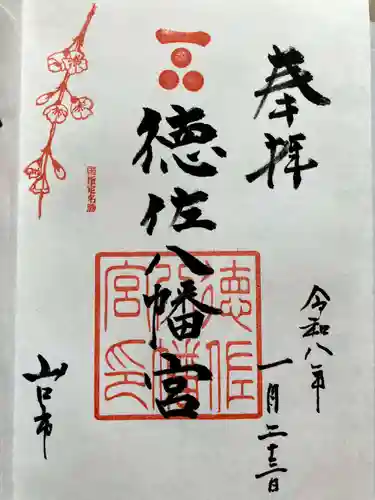 奉拝
令和八年
一月二十三日
徳佐八幡宮
徳佐八幡宮印
国指定名勝
山口市